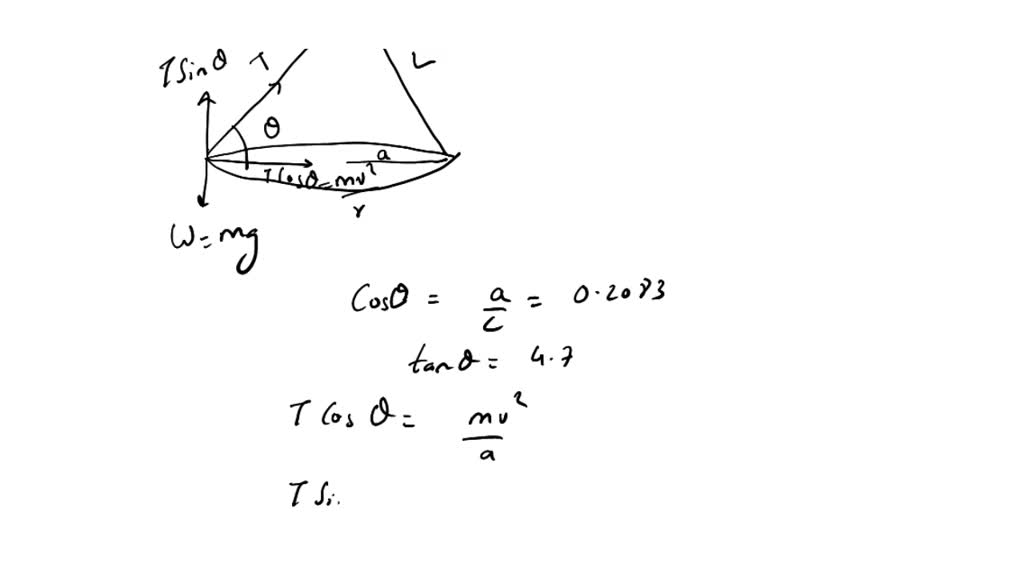 T Sinθ T L
θ
a
T Cosθ = mv²
r
W = mg
Cosθ = a/L = 0.2083
tanθ = 4.7
T Cos θ = mv²/a
T Si